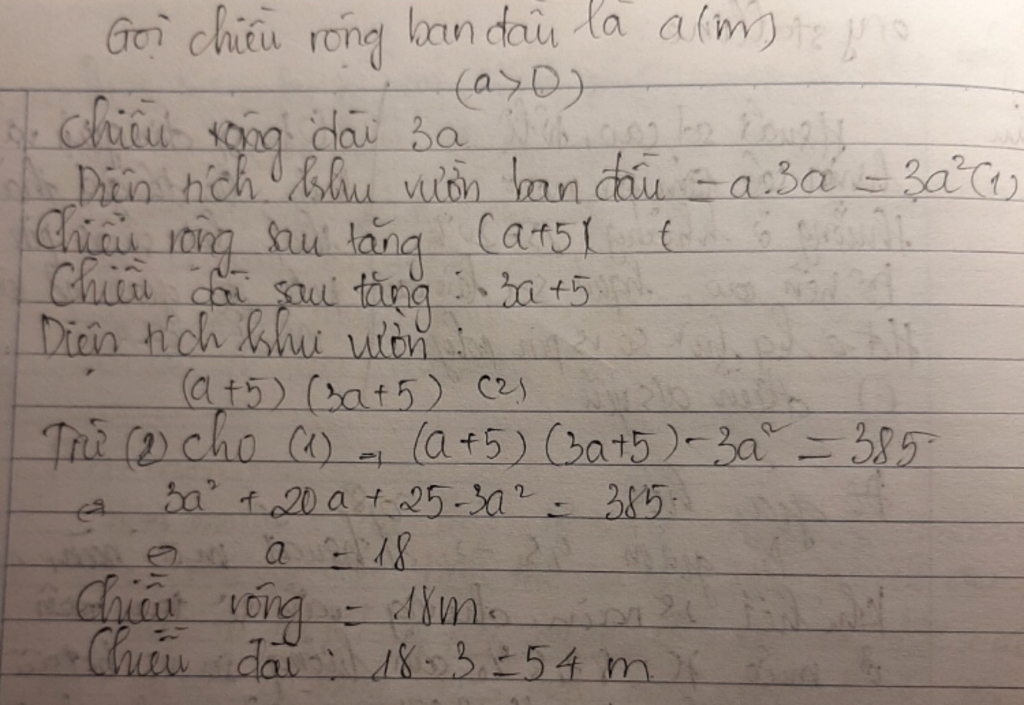 Gọi chiều rộng ban đầu là a(m)
(a>0)
Chiều rộng dài 3a
Diện tích khu vườn ban đầu = a.3a = 3a²(1)
Chiều rộng sau tăng (a+5)
Chiều dài sau tăng : 3a+5
Diện tích khu vườn :
(a+5) (3a+5) (2)
Trừ (2) cho (1) → (a+5) (3a+5) - 3a² = 385
⇔ 3a² + 20a + 25 - 3a² = 385
⇔ a = 18
Chiều rộng = 18m
Chiều dài : 18.3 = 54 m